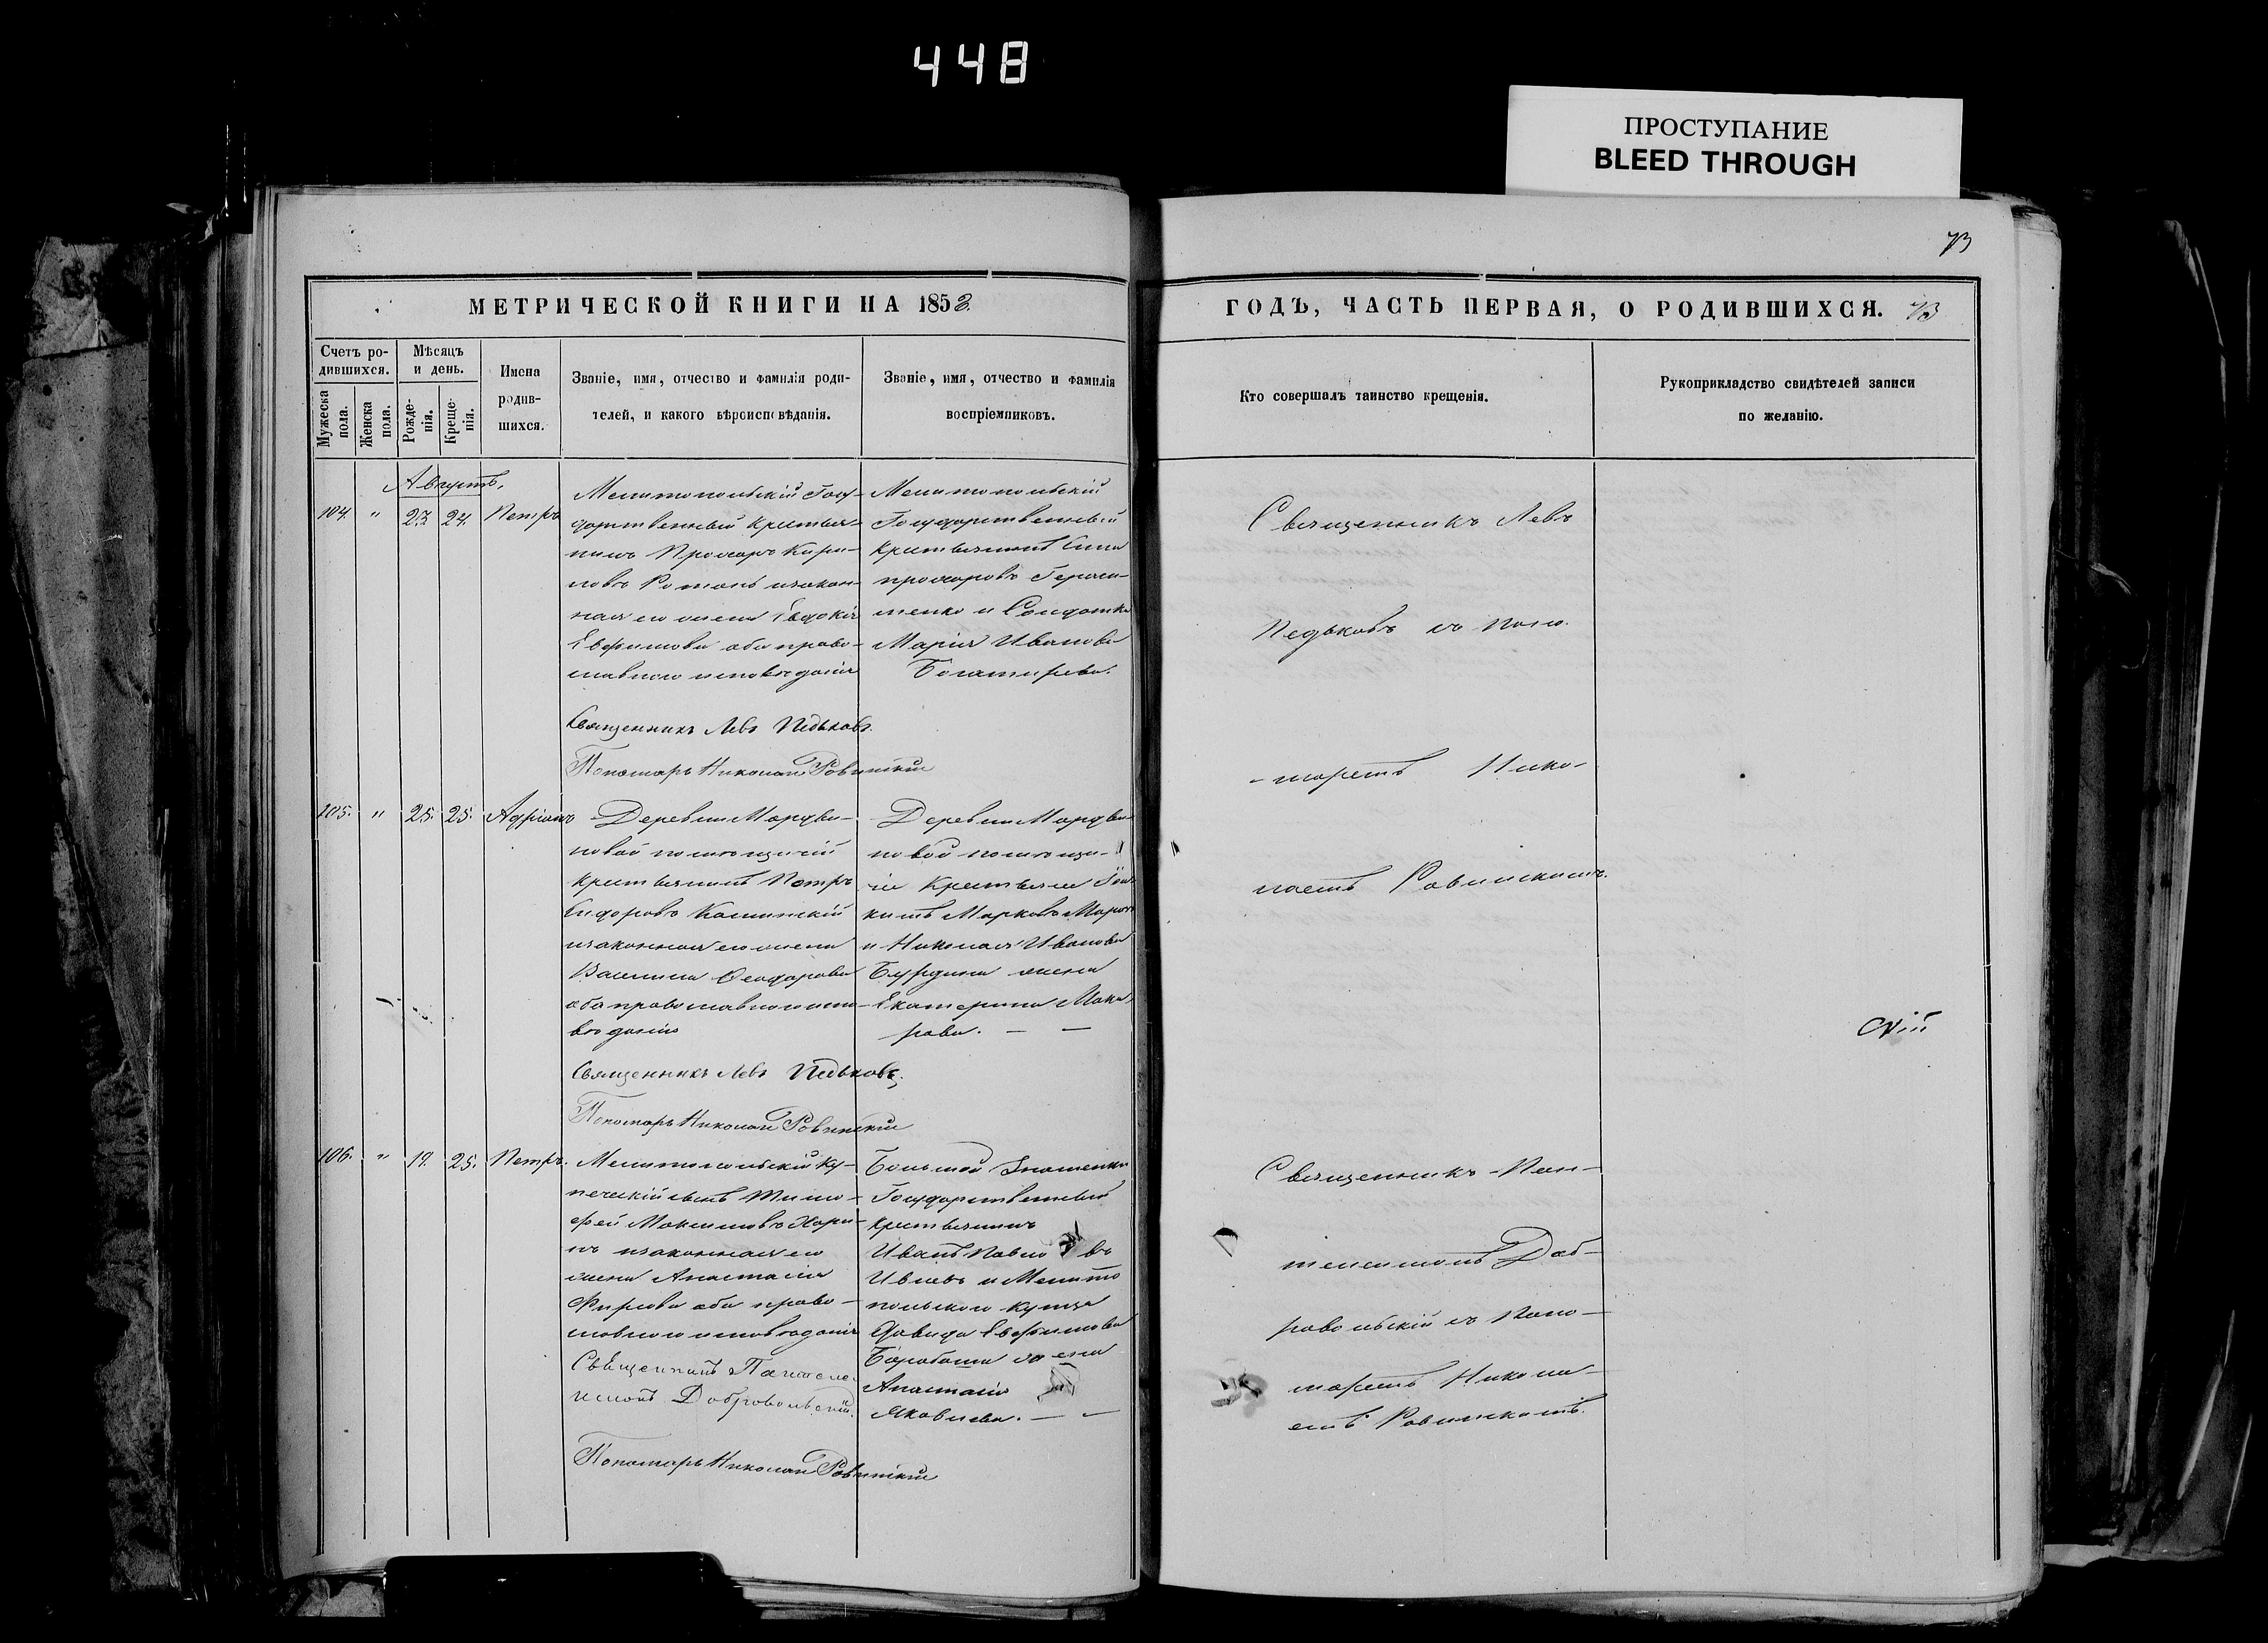 448
ПРОСТУПАНИЕ
BLEED THROUGH
73
МЕТРИЧЕСКОЙ КНИГИ НА 1853.
ГОДЪ, ЧАСТЬ ПЕРВАЯ, О РОДИВШИХСЯ. 73
Счетъ ро-
дившихся.
Мужеска пола.
Женска пола.
Мѣсяцъ
и день.
Рожде-
нія.
Креще-
нія.
Имена
родив-
шихся.
Званіе, имя, отчество и фамилія роди-
телей, и какого вѣроисповѣданія.
Званіе, имя, отчество и фамилія
воспріемниковъ.
Кто совершалъ таинство крещенія.
Рукоприкладство свидѣтелей записи
по желанію.
Августъ.
104. " 23. 24. Петръ
Мелитопольскій Госу-
дарственный крестья-
нинъ Прохоръ Кири-
ловъ Романъ изакон-
ная его жена Евдокія
Ефимова оба право-
славнаго исповѣданія
Священникъ Левъ Педьковъ.
Пономарь Николай Ровинскій
Мелитопольскій
Государственный
крестьянинъ
Прохоровъ Гераси-
менко и Солдатка
Марія Иванова
Богатирева.
Священникъ Левъ
Педьковъ съ Поно-
-маремъ Нико-
лаемъ Ровинскимъ.
105. " 25. 25. Адріанъ
Деревни Мордви-
новой помѣщичій
крестьянинъ Петръ
Сидоровъ
изаконная его жена
Василиса Феодорова
оба православнаго испо-
вѣданія
Священникъ Левъ Педьковъ.
Пономарь Николай Ровинскій
Деревни Мордви-
новой помѣщи-
чіи Крестьяне
Марковъ
и Николая Иванова
Бурдина жена
Екатерина Мака-
рова. — —
106. " 19. 25. Петръ.
Мелитопольскій ку-
печескій сынъ Тимо-
фей Максимовъ
изаконная его
жена Анастасія
Фирсова оба право-
славнаго исповѣданія
Священникъ Пантеле-
иմонъ Добровольскій.
Пономарь Николай Ровинскій
Большой Знаменки
Государственный
крестьянинъ
Иванъ Павловъ
Ивлевъ и Мелито
польскаго купца
Давида Ефимова
жена
Анастасія
Яковлева. — —
Священникъ Пан-
телеимонъ Доб-
ровольскій съ Поно-
маремъ Никола-
емъ Ровинскимъ.